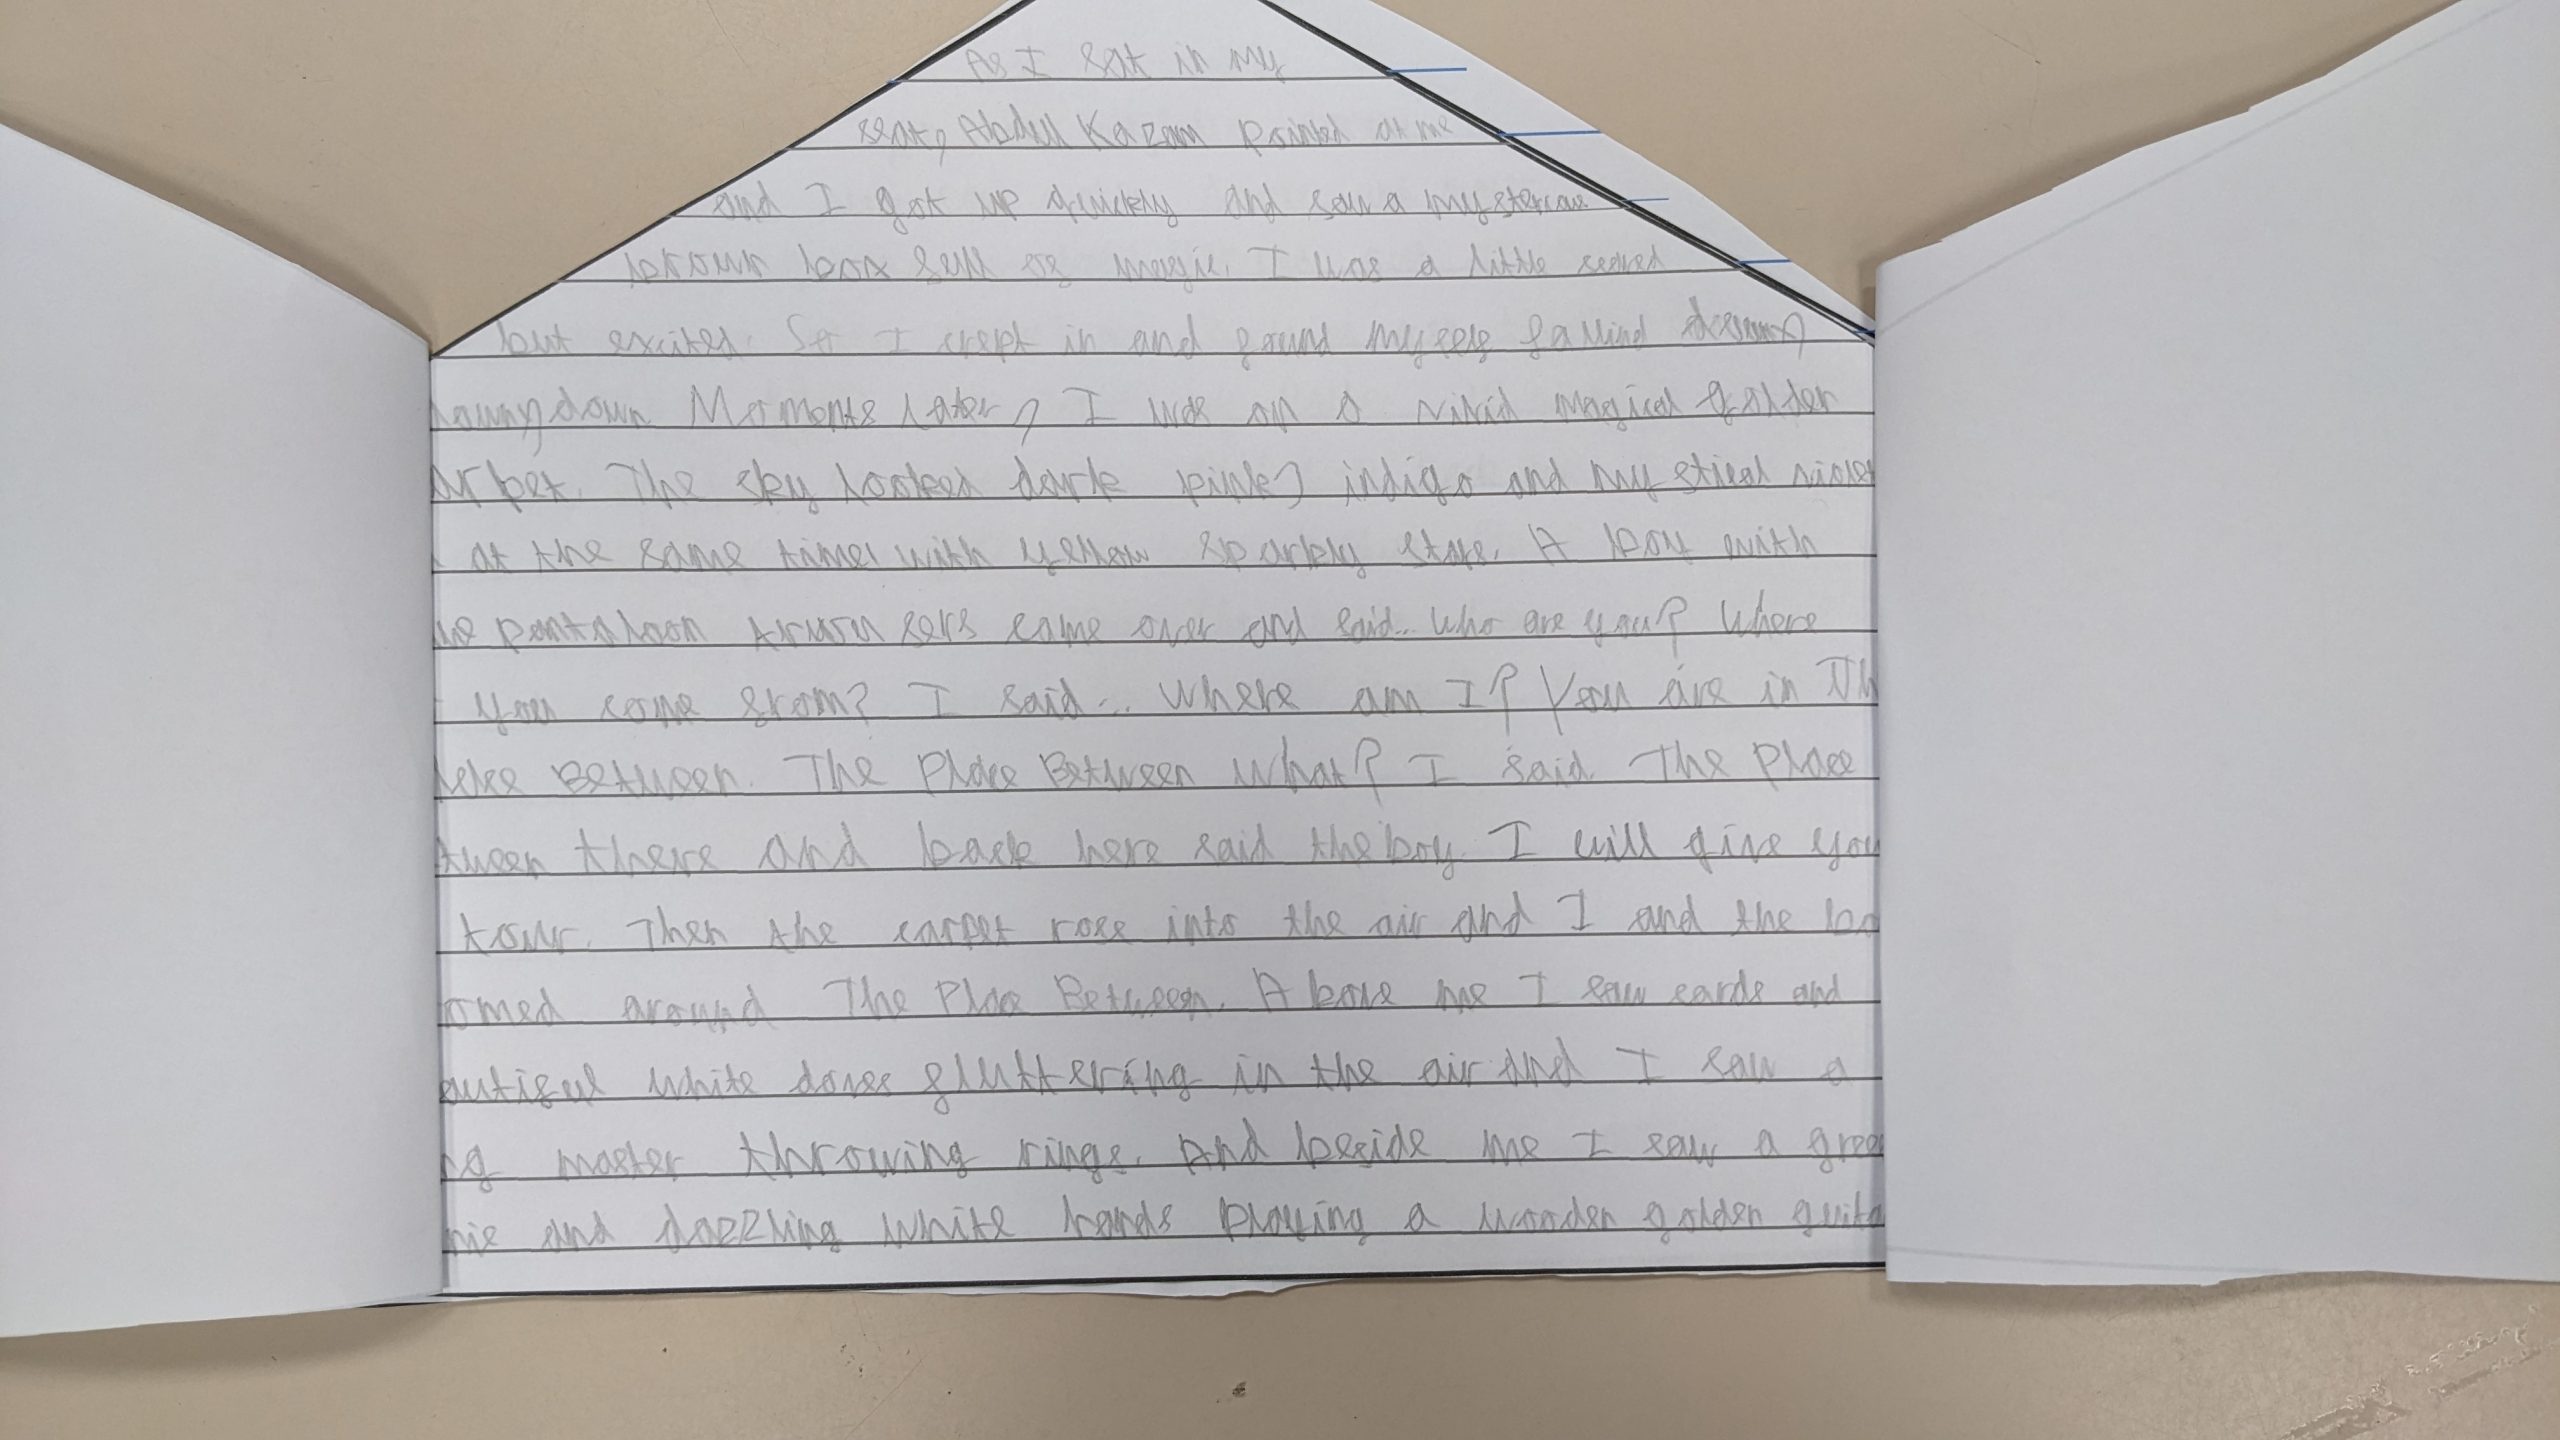 As I sat in my
seat, Abdul Kazam pointed at me
and I got up quickly and saw a
brown box full of magic. I was a little scared
but excited. So I crept in and found myself
down Moments later, I was on a magical golden
arpet. The sky looked dark pink, indigo and mystical violet
at the same time with yellow sparkly stars. A boy with
pantaloon came over and said... Who are you? Where
you come from? I said... Where am I? You are in Th
Between. The Place Between What? I said. The Place
tween there and back here said the boy. I will give you
tour. Then the carpet rose into the air and I and the bo
omed around The Place Between. Above me I saw cards and
eautiful white doves fluttering in the air and I saw a
ng master throwing rings. And beside me I saw a gree
nie and dazzling white hands playing a wooden golden guita